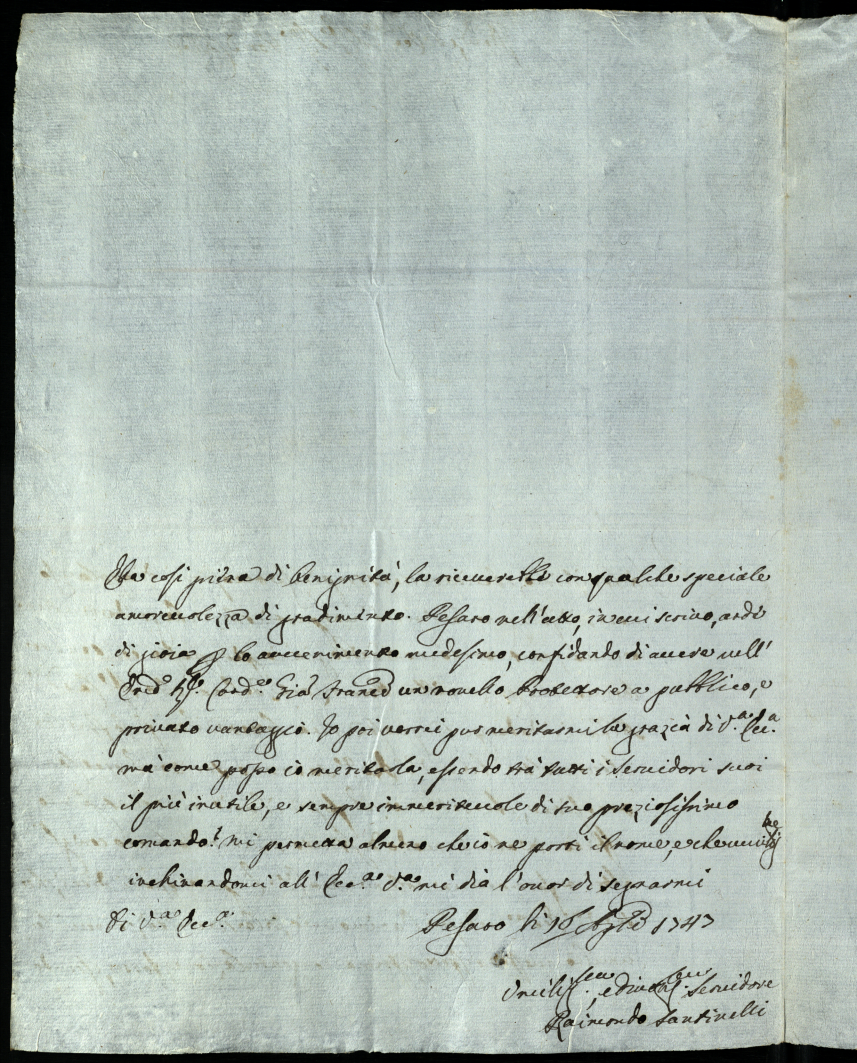 Ella così piena di benignità, la riceverebbe con qualche speciale
amorevolezza di gradimento. Pesaro nell'atto, in cui scrivo, arde
di gioia p lo avvenimento medesimo, confidando di avere nell'
Card.e Gia: Franc.o un novello Protettore a pubblico, e
privato vantaggio. Io poi vorrei pur meritarmi la grazia di V.a Ecc.a
ma come posso io meritarla, essendo trà tutti i Servidori suoi
il più inutile, e sempre immeritevole di suo preziosissimo
comando? mi permetta almeno che io ne porti il nome, e che
inchinandomi all' Ecc.a V.a mi dia l'onor di segnarmi
Di V.a Ecc.a
Pesaro li 16 1747
Umiliss.mo, e divotiss.mo Servidore
Raimondo Santinelli